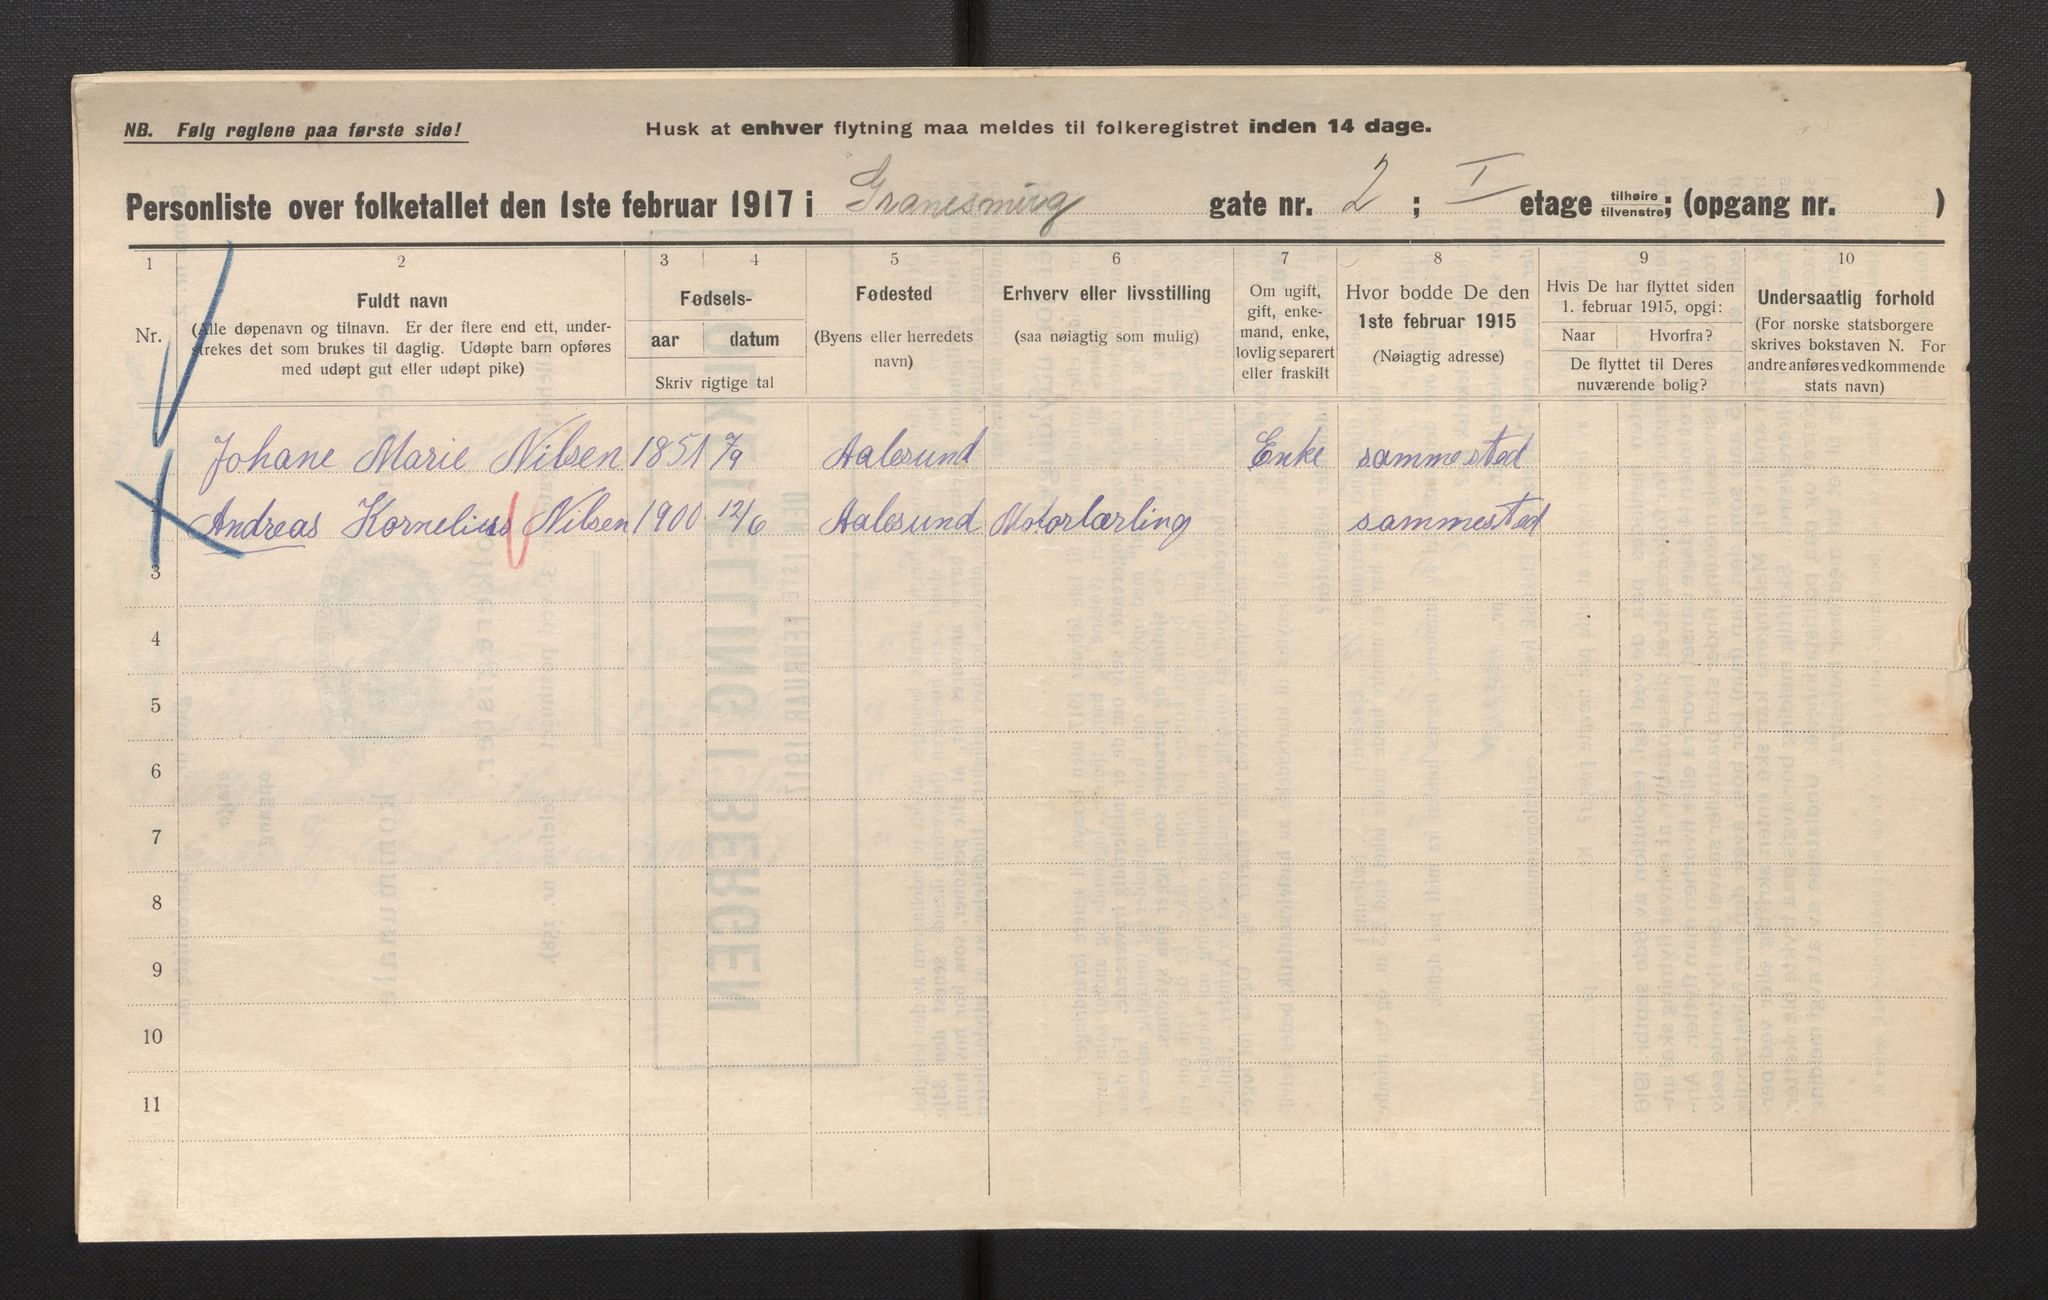 NB. Følg reglene paa første side!
Husk at enhver flytning maa meldes til folkeregistret inden 14 dage.
Personliste over folketallet den 1ste februar 1917 i gate nr. 2 ; I etage tilhøire tilvenstre; (opgang nr. )
1 2 3 4 5 6 7 8 9 10
Nr.
Fuldt navn
(Alle døpenavn og tilnavn. Er der flere end ett, under-
strekes det som brukes til daglig. Udøpte barn opføres
med udøpt gut eller udøpt pike)
Fødsels-
aar datum
Skriv rigtige tal
Fødested
(Byens eller herredets
navn)
Erhverv eller livsstilling
(saa nøiagtig som mulig)
Om ugift,
gift, enke-
mand, enke,
lovlig separert
eller fraskilt
Hvor bodde De den
1ste februar 1915
(Nøiagtig adresse)
Hvis De har flyttet siden
1. februar 1915, opgi:
Naar Hvorfra?
De flyttet til Deres
nuværende bolig?
Undersaatlig forhold
(For norske statsborgere
skrives bokstaven N. For
andre anføres vedkommende
stats navn)
Johane Marie Nilsen 1851 7/9 Aalesund Enke sammested
2 Andreas Kornelius Nilsen 1900 12/6 Aalesund Motorlærling sammested
3
4
5
6
7
8
9
10
11